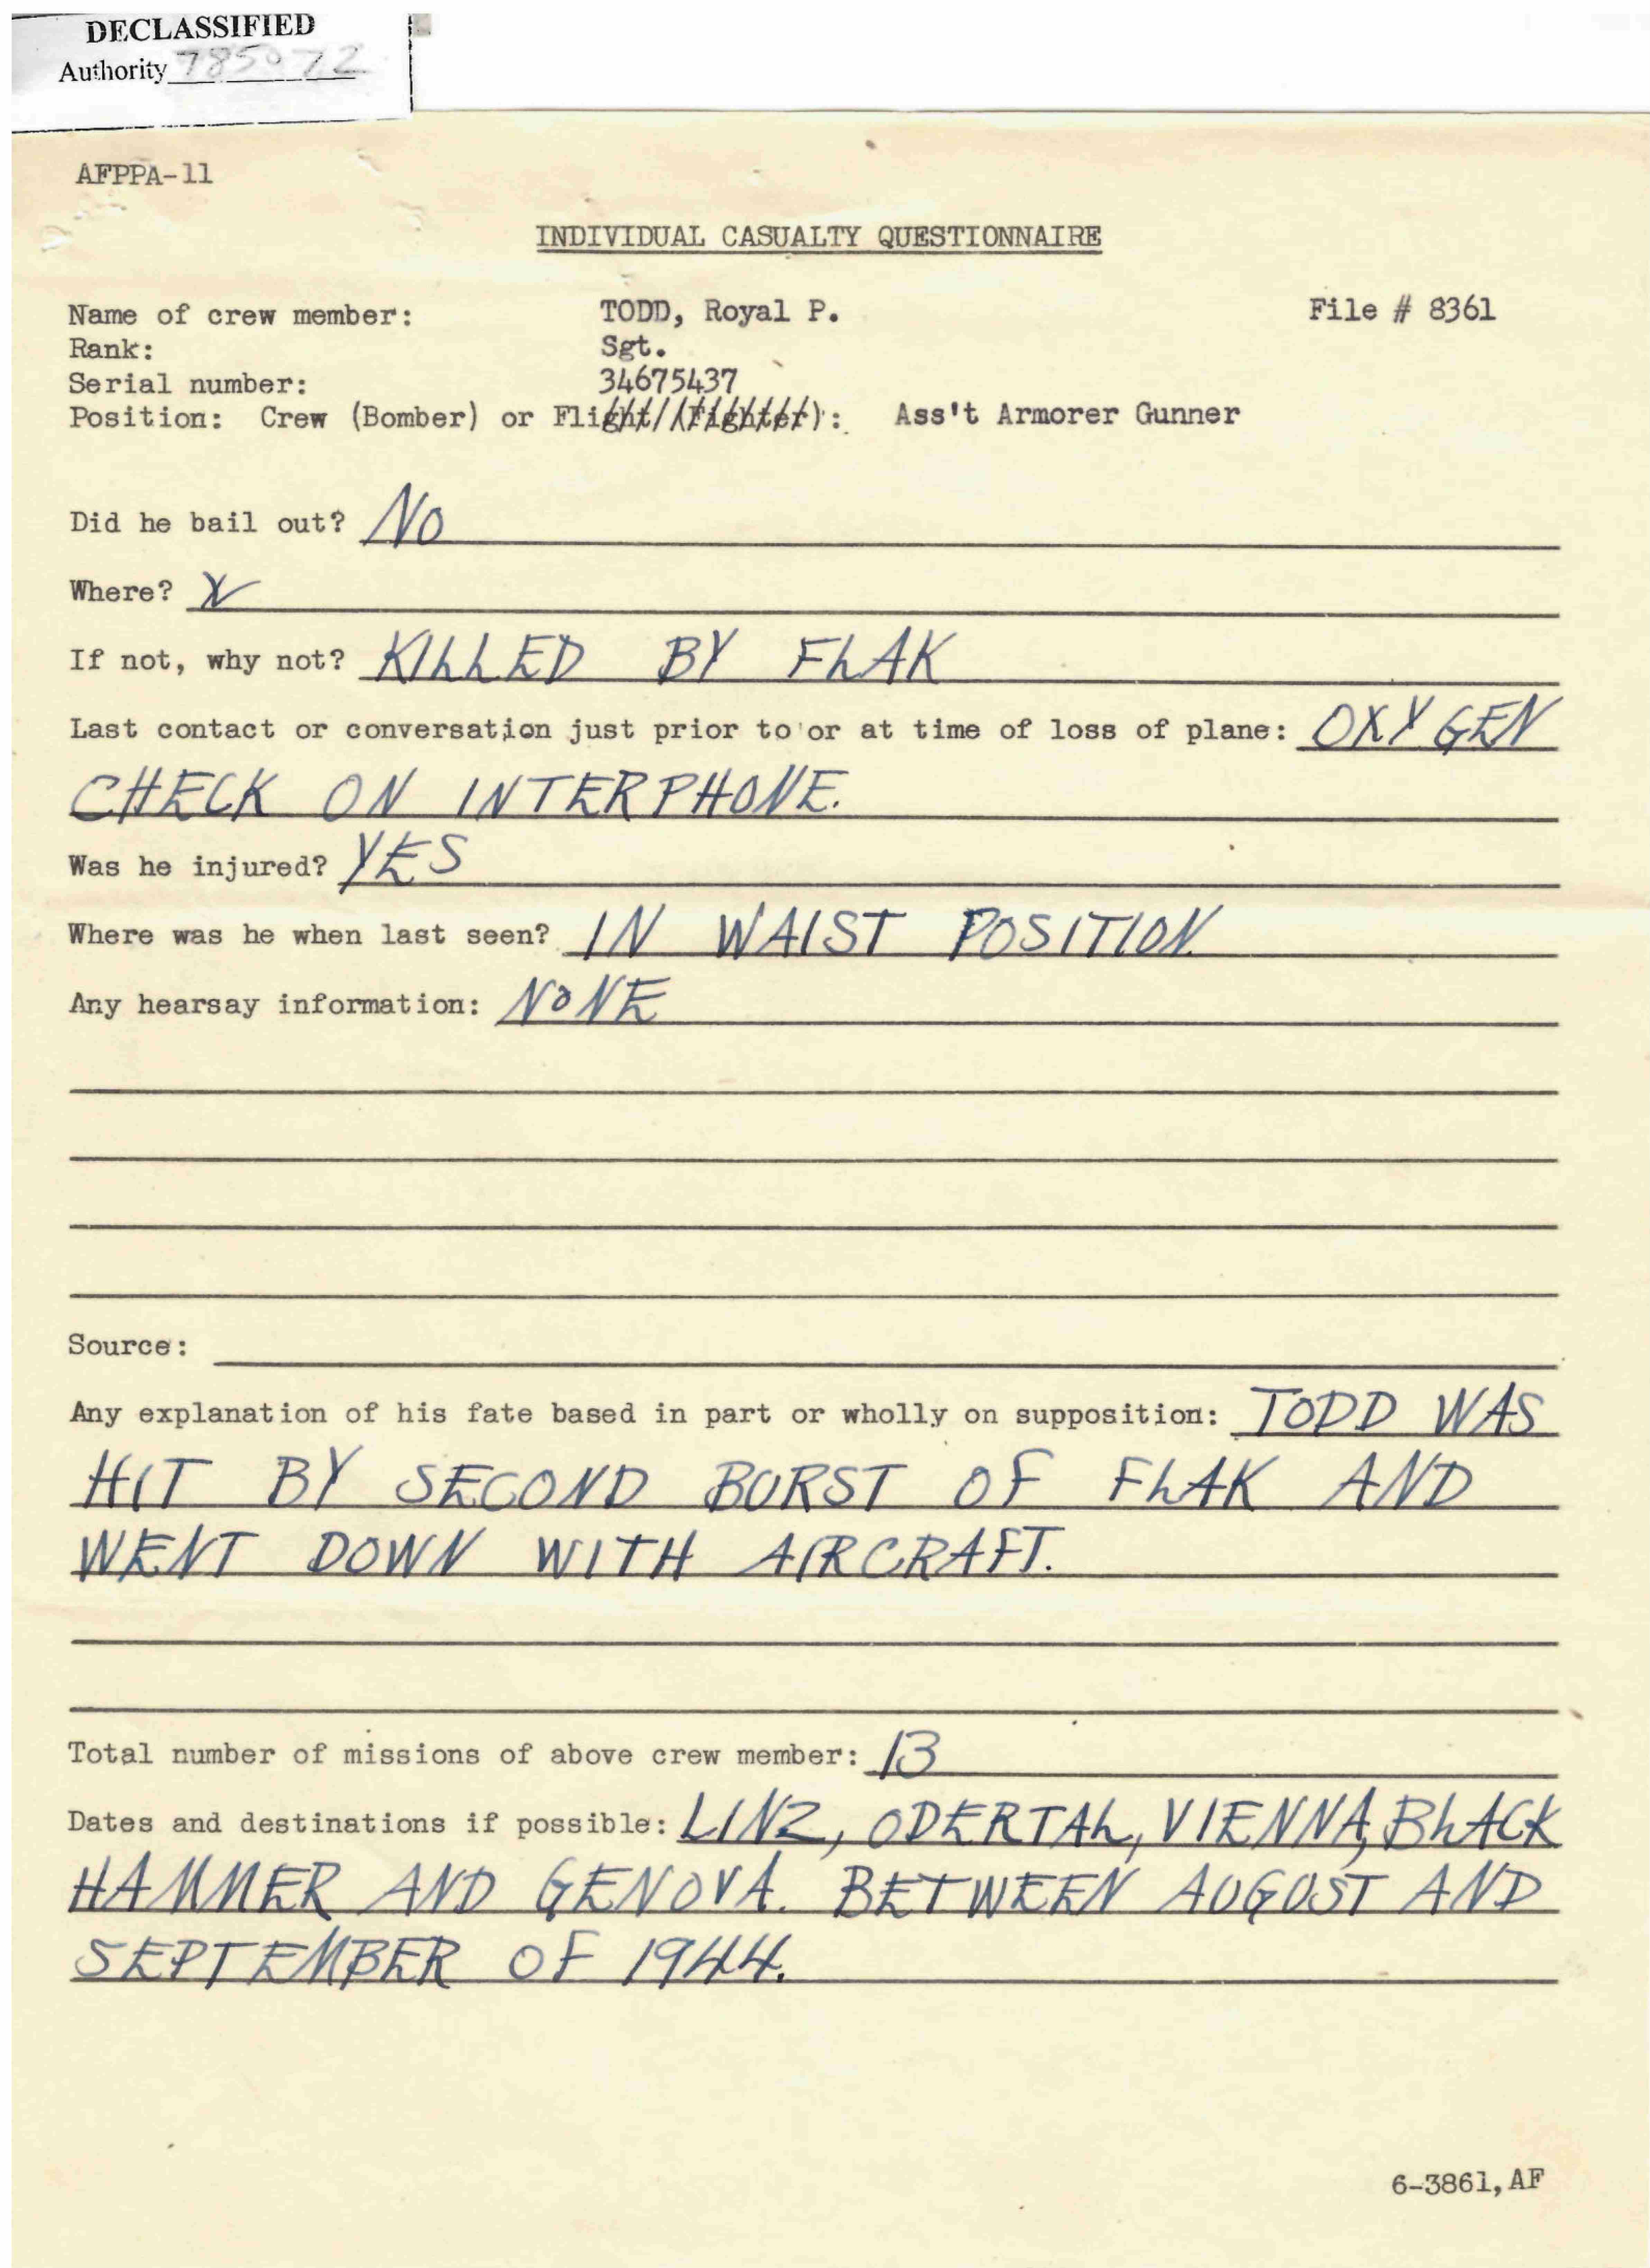 DECLASSIFIED
Authority 785072
AFPPA-11
INDIVIDUAL CASUALTY QUESTIONNAIRE
Name of crew member: TODD, Royal P. File # 8361
Rank: Sgt.
Serial number: 34675437
Position: Crew (Bomber) or Flight (Fighter): Ass't Armorer Gunner
Did he bail out? NO
Where? X
If not, why not? KILLED BY FLAK
Last contact or conversation just prior to or at time of loss of plane: OXYGEN
CHECK ON INTERPHONE.
Was he injured? YES
Where was he when last seen? IN WAIST POSITION
Any hearsay information: NONE
Source:
Any explanation of his fate based in part or wholly on supposition: TODD WAS
HIT BY SECOND BURST OF FLAK AND
WENT DOWN WITH AIRCRAFT.
Total number of missions of above crew member: 13
Dates and destinations if possible: LINZ, ODERTAL, VIENNA, BLACK
HAMMER AND GENOVA. BETWEEN AUGUST AND
SEPTEMBER OF 1944.
6-3861, AF